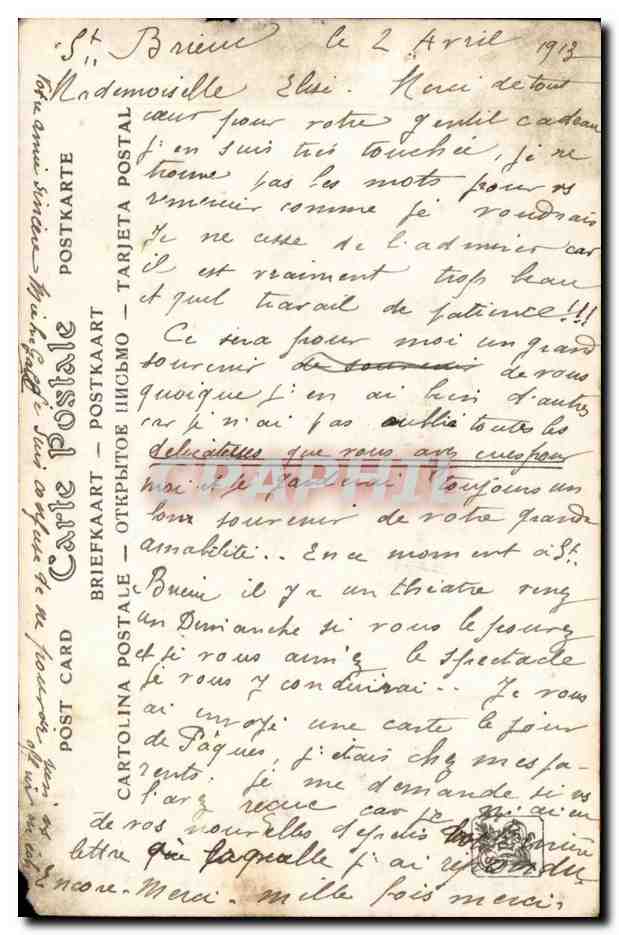 St Brieuc le 2 Avril 1913
Mademoiselle Elise. Merci de tout
cœur pour votre gentil cadeau
j'en suis très touchée, je ne
trouve pas les mots pour vs
remercier comme je voudrais
Je ne cesse de l'admirer car
il est vraiment trop beau
et quel travail de patience!!!
Ce sera pour moi un grand
souvenir de souvenir de vous
quoique j'en ai bien d'autres
car je n'ai pas oublié toutes les
délicatesses que vous avez eues pour
moi et je garderai toujours un
bon souvenir de votre grande
amabilité.. En ce moment à St.
Brieuc il y a un théâtre venez
un Dimanche si vous le pouvez
et si vous aimez le spectacle
je vous y conduirai.. Je vous
ai envoyé une carte le jour
de Pâques, j'étais chez mes pa-
rents. je me demande si vs
l'avez reçue car je n'ai eu
de vos nouvelles depuis
lettre que laquelle j'ai répondu
encore. Merci. mille fois merci.
votre amie sincère
je suis confuse de ne pouvoir rien vs
offrir
POST CARD Carte Postale POSTKARTE
BRIEFKAART — POSTKAART
CARTOLINA POSTALE — ОТКРЫТОЕ ПИСЬМО — TARJETA POSTAL
CPAPHIL